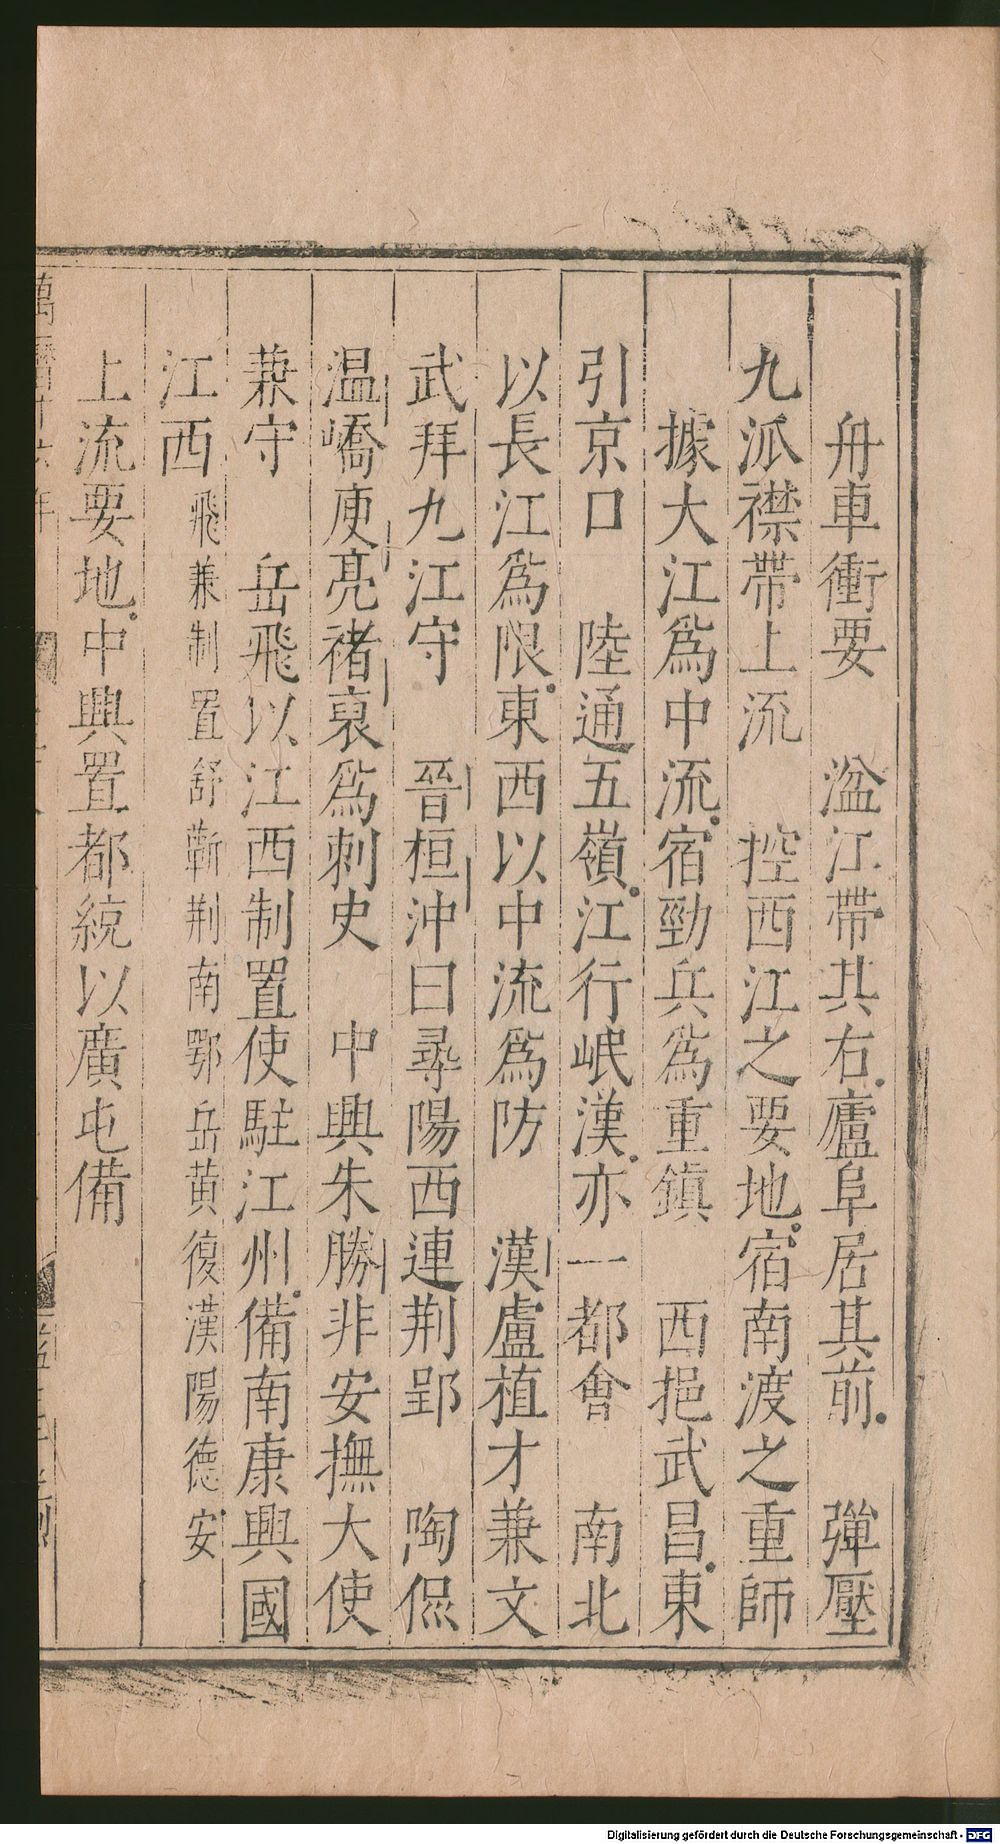 舟車衝要　湓江帶其右廬阜居其前　彈壓
九派襟帶上流　控西江之要地宿南渡之重師
據大江爲中流宿勁兵爲重鎮　西挹武昌東
引京口　陸通五嶺江行岷漢亦一都會　南北
以長江爲限東西以中流爲防　漢盧植才兼文
武拜九江守　晉桓沖曰尋陽西連荆郢　陶侃
温嶠庾亮褚裒爲刺史　中興朱勝非安撫大使
兼守　岳飛以江西制置使駐江州備南康興國
江西飛兼制置舒蘄荆南鄂岳黄復漢陽德安
上流要地中興置都統以廣屯備
萬曆年
Digitalisierung gefördert durch die Deutsche Forschungsgemeinschaft - DFG